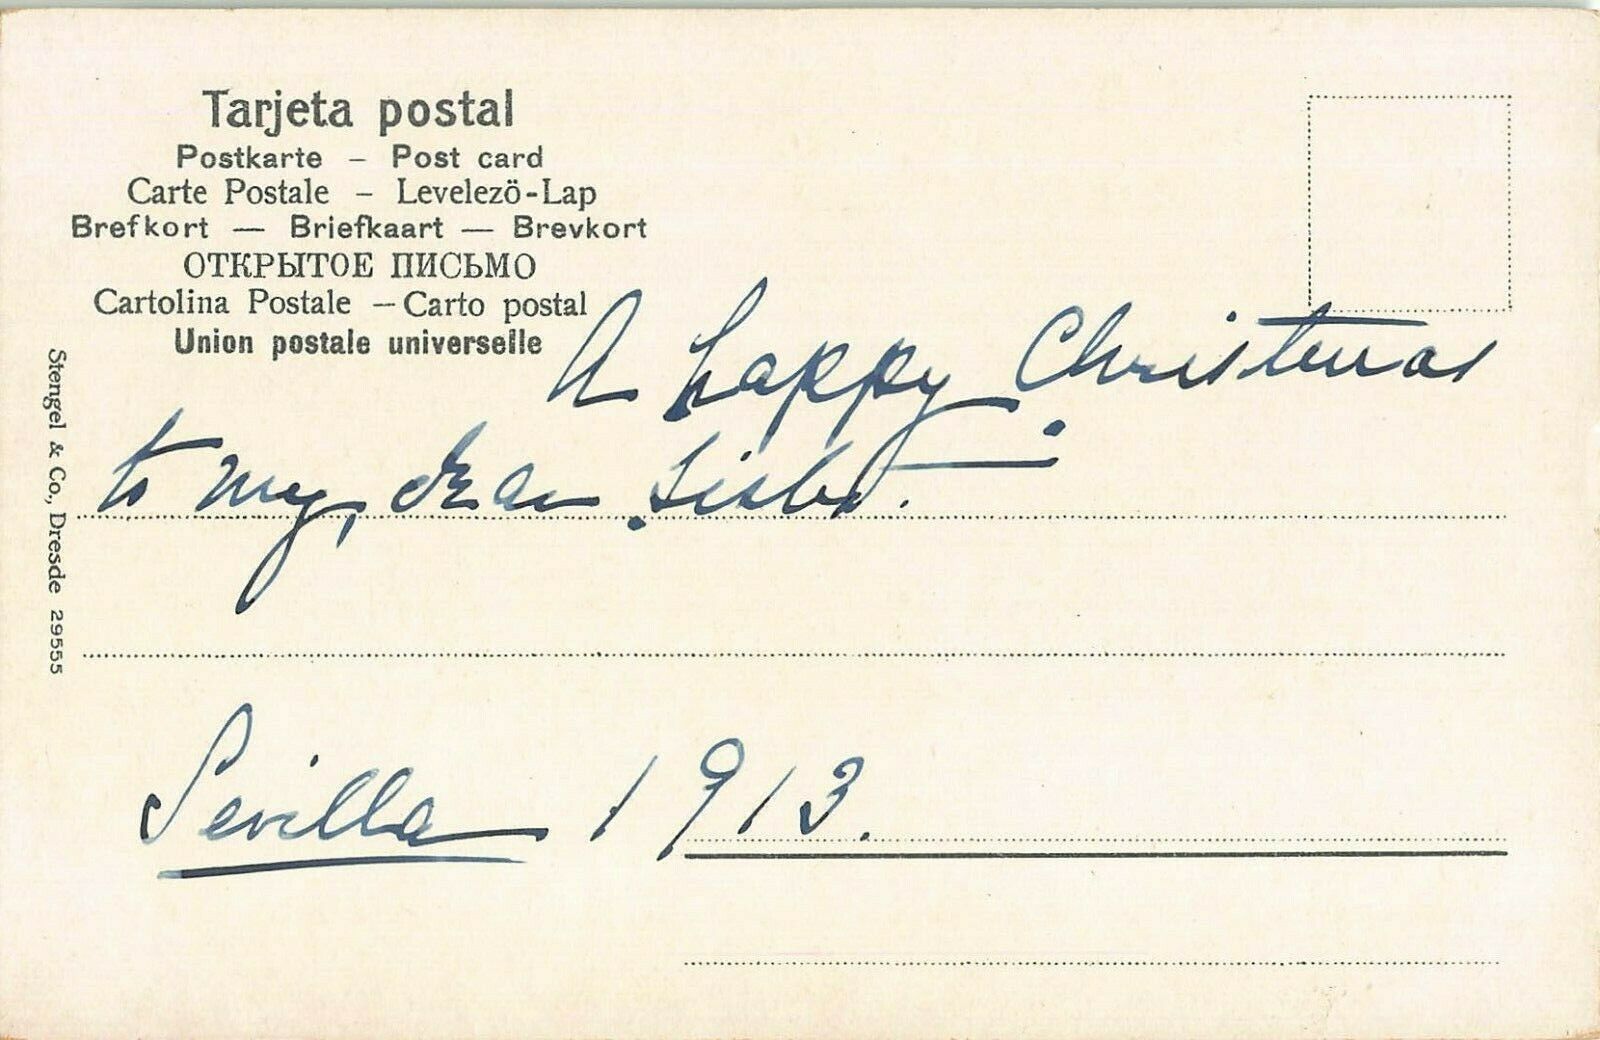 Tarjeta postal
Postkarte – Post card
Carte Postale – Levelezö-Lap
Brefkort — Briefkaart — Brevkort
ОТКРЫТОЕ ПИСЬМО
Cartolina Postale – Carto postal
Union postale universelle
A happy Christmas
to my dear Sister.
Sevilla 1913.
Stengel & Co., Dresde 29555